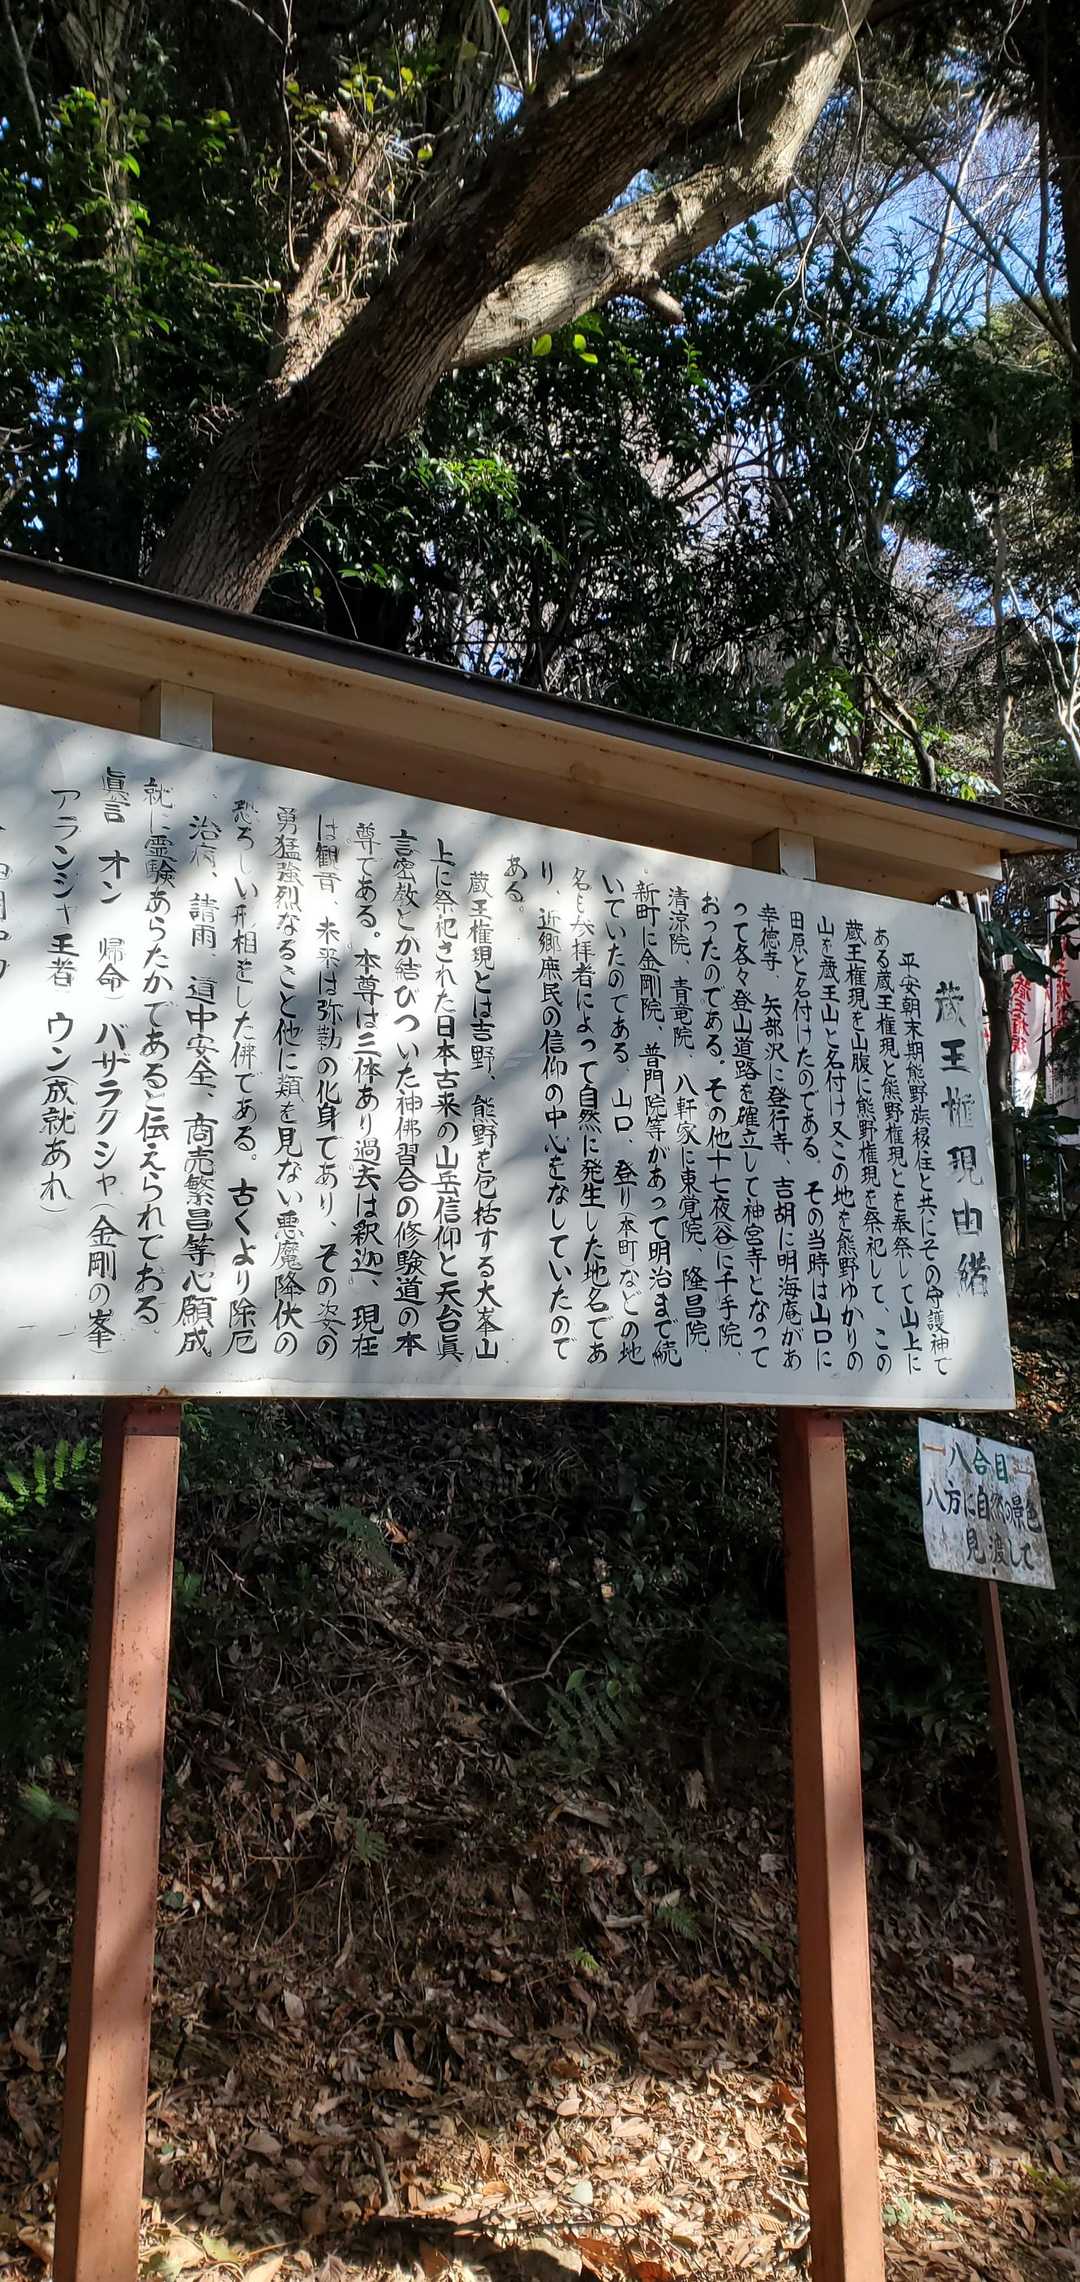 蔵王権現由緒
平安朝末期熊野族移住と共にその守護神で
ある蔵王権現と熊野権現とを奉祭して山上に
蔵王権現を山腹に熊野権現を祭祀して、この
山を蔵王山と名付け又この地を熊野ゆかりの
田原と名付けたのである。その当時は山口に
幸徳寺、矢部沢に登行寺、吉胡に明海庵があ
って各々登山道路を確立して神宮寺となって
おったのである。その他十七夜谷に千手院、
清涼院、青竜院、八軒家に東覚院、隆昌院、
新町に金剛院、普門院等があって明治まで続
いていたのである。山口、登り(本町)などの地
名も参拝者によって自然に発生した地名であ
り、近郷庶民の信仰の中心をなしていたので
ある。
蔵王権現とは吉野、熊野を包括する大峯山
上に祭祀された日本古来の山岳信仰と天台眞
言密教とが結びついた神佛習合の修験道の本
尊である。本尊は三体あり過去は釈迦、現在
は観音、未来は弥勒の化身であり、その姿の
勇猛強烈なること他に類を見ない悪魔降伏の
恐ろしい形相をした佛である。古くより除厄
、治病、請雨、道中安全、商売繁昌等心願成
就に霊験あらたかであると伝えられておる。
眞言 オン(帰命)バザラクシャ(金剛の峯)
アランジャ王者 ウン(成就あれ)
八合目
八方に自然の景色
見渡して